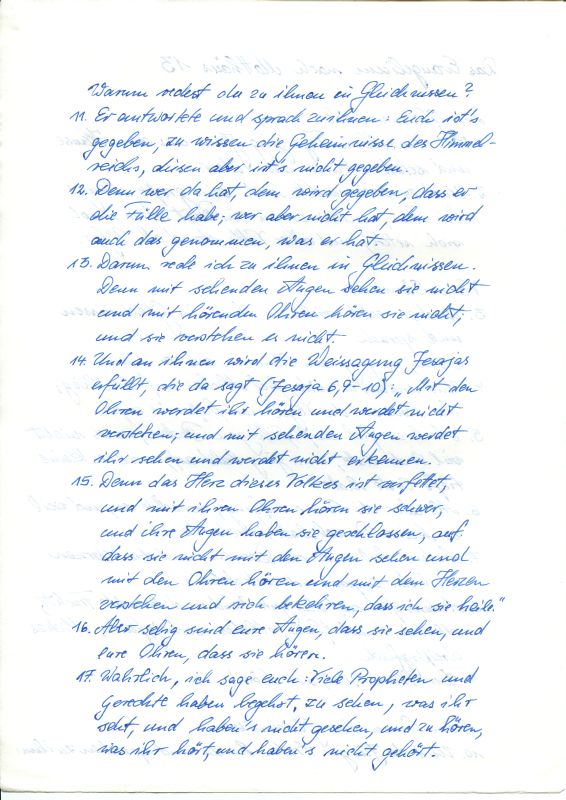 Warum redest du zu ihnen in Gleichnissen?
11. Er antwortete und sprach zu ihnen: Euch ist's
gegeben, zu wissen die Geheimnisse des Himmel-
reichs, diesen aber ist's nicht gegeben.
12. Denn wer da hat, dem wird gegeben, dass er
die Fülle habe; wer aber nicht hat, dem wird
auch das genommen, was er hat.
13. Darum rede ich zu ihnen in Gleichnissen.
Denn mit sehenden Augen sehen sie nicht
und mit hörenden Ohren hören sie nicht;
und sie verstehen es nicht.
14. Und an ihnen wird die Weissagung Jesajas
erfüllt, die da sagt (Jesaja 6,9-10): „Mit den
Ohren werdet ihr hören und werdet nicht
verstehen; und mit sehenden Augen werdet
ihr sehen und werdet nicht erkennen.
15. Denn das Herz dieses Volkes ist verfettet,
und mit ihren Ohren hören sie schwer,
und ihre Augen haben sie geschlossen, auf
dass sie nicht mit den Augen sehen und
mit den Ohren hören und mit dem Herzen
verstehen und sich bekehren, dass ich sie heile."
16. Aber selig sind eure Augen, dass sie sehen, und
eure Ohren, dass sie hören.
17. Wahrlich, ich sage euch: Viele Propheten und
Gerechte haben begehrt, zu sehen, was ihr
seht, und haben's nicht gesehen, und zu hören,
was ihr hört, und haben's nicht gehört.